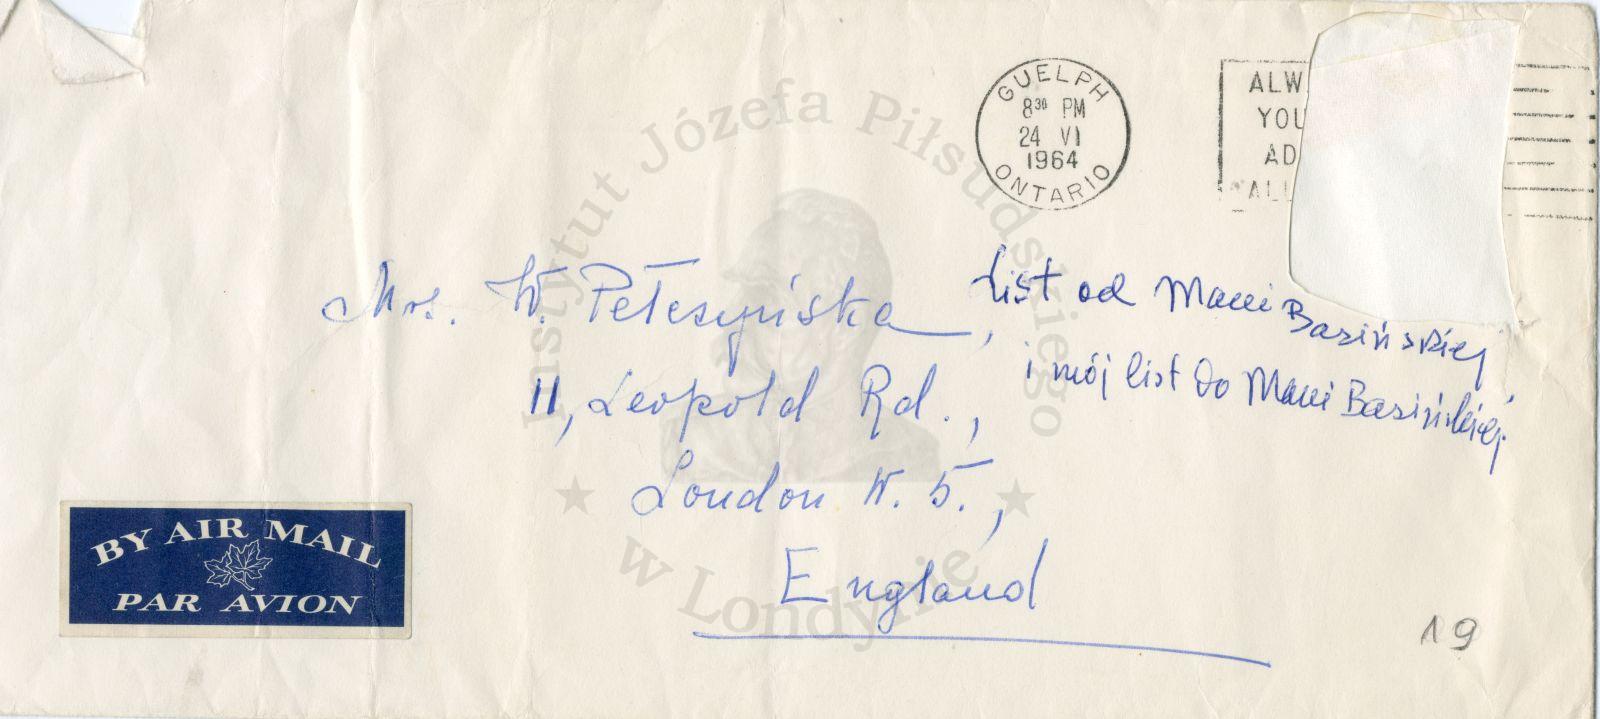 GUELPH
8³⁰ PM
24 VI
1964
ONTARIO
YOU
AD
Instytut Józefa Piłsudskiego
w Londynie
Mrs. W. Pełczyńska,
11, Leopold Rd.,
London W. 5.,
England
List od Mani Basińskiej,
i mój list do Mani Basińskiej.
BY AIR MAIL
PAR AVION
19